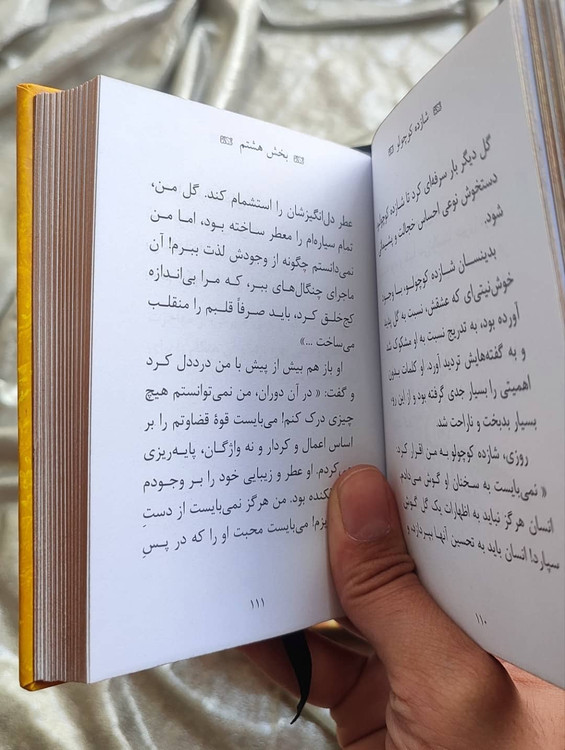 شازده کوچولو
گل دیگر بار سرفه‌ای کرد تا شازده کوچولو
دستخوش نوعی احساس خجالت و پشیمانی
شود.
بدینسان شازده کوچولو، با وجود
خوش‌نیتی‌ای که عشقش، نسبت به گل پدید
آورده بود، به تدریج نسبت به او مشکوک شد
و به گفته‌هایش تردید آورد. او کلمات بدون
اهمیتی را بسیار جدی گرفته بود و از این رو،
بسیار بدبخت و ناراحت شد.
روزی، شازده کوچولو به من اقرار کرد:
« نمی‌بایست به سخنان او گوش می‌دادم.
انسان هرگز نباید به اظهارات یک گل گوش
سپارد! انسان باید به تحسین آنها بپردازد و
۱۱۰
بخش هشتم
عطر دل‌انگیزشان را استشمام کند. گل من،
تمام سیاره‌ام را معطر ساخته بود، اما من
نمی‌دانستم چگونه از وجودش لذت ببرم! آن
ماجرای چنگال‌های ببر، که مرا بی‌اندازه
کج‌خلق کرد، باید صرفاً قلبم را منقلب
می‌ساخت ...»
او باز هم بیش از پیش با من درددل کرد
و گفت: « در آن دوران، من نمی‌توانستم هیچ
چیزی درک کنم! می‌بایست قوهٔ قضاوتم را بر
اساس اعمال و کردار و نه واژگان، پایه‌ریزی
می‌کردم. او عطر و زیبایی خود را بر وجودم
بود. من هرگز نمی‌بایست از دستِ
می‌بایست محبت او را که در پسِ
۱۱۱